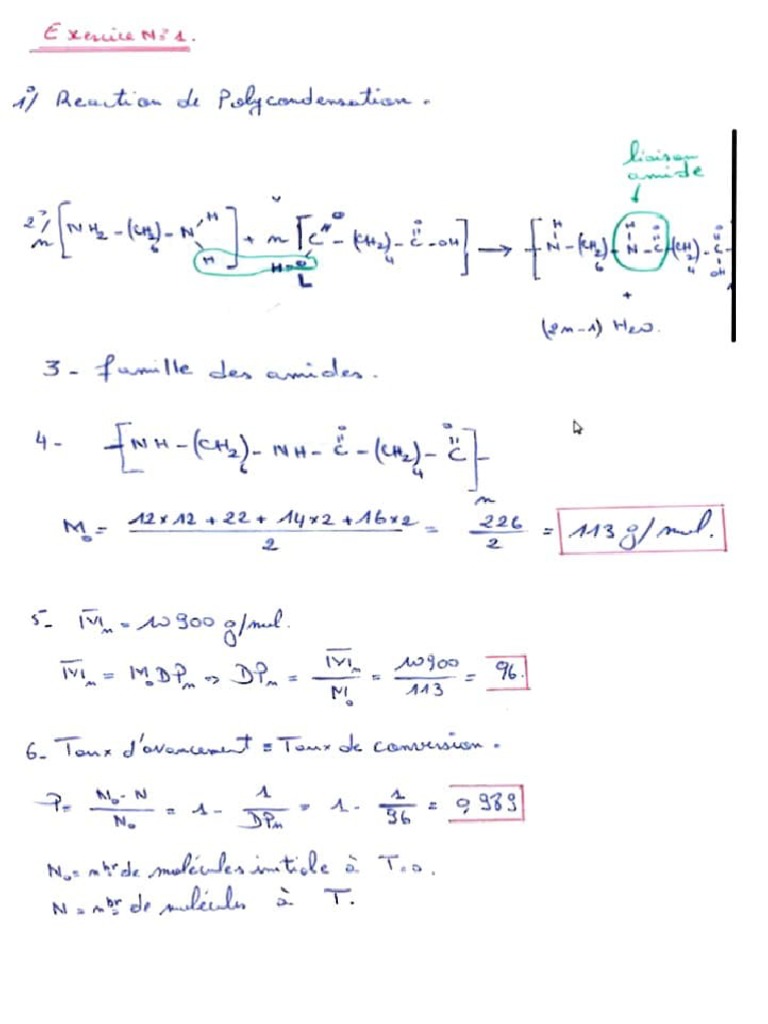 Exercice N°1.
1°/ Reaction de Polycondensation.
liaison
amide
2°/ n[NH2-(CH2)6-N-H H] + n[C-(CH2)4-C-OH] → [N-(CH2)6-N-C-(CH2)4-C]
+
(2n-1) H2O.
3- famille des amides.
4- [NH-(CH2)6-NH-C-(CH2)4-C]n
M0 = 12x12 + 22 + 14x2 + 16x2 / 2 = 226 / 2 = 113 g/mol.
5- M̅n = 10900 g/mol.
M̅n = M0 DPn => DPn = M̅n / M0 = 10900 / 113 = 96.
6- Taux d'avancement = Taux de conversion.
P = N0-N / N0 = 1 - 1 / DPn = 1 - 1 / 96 = 0,989
N0 = nbr de molécules initiale à T=0.
N = nbr de molécules à T.